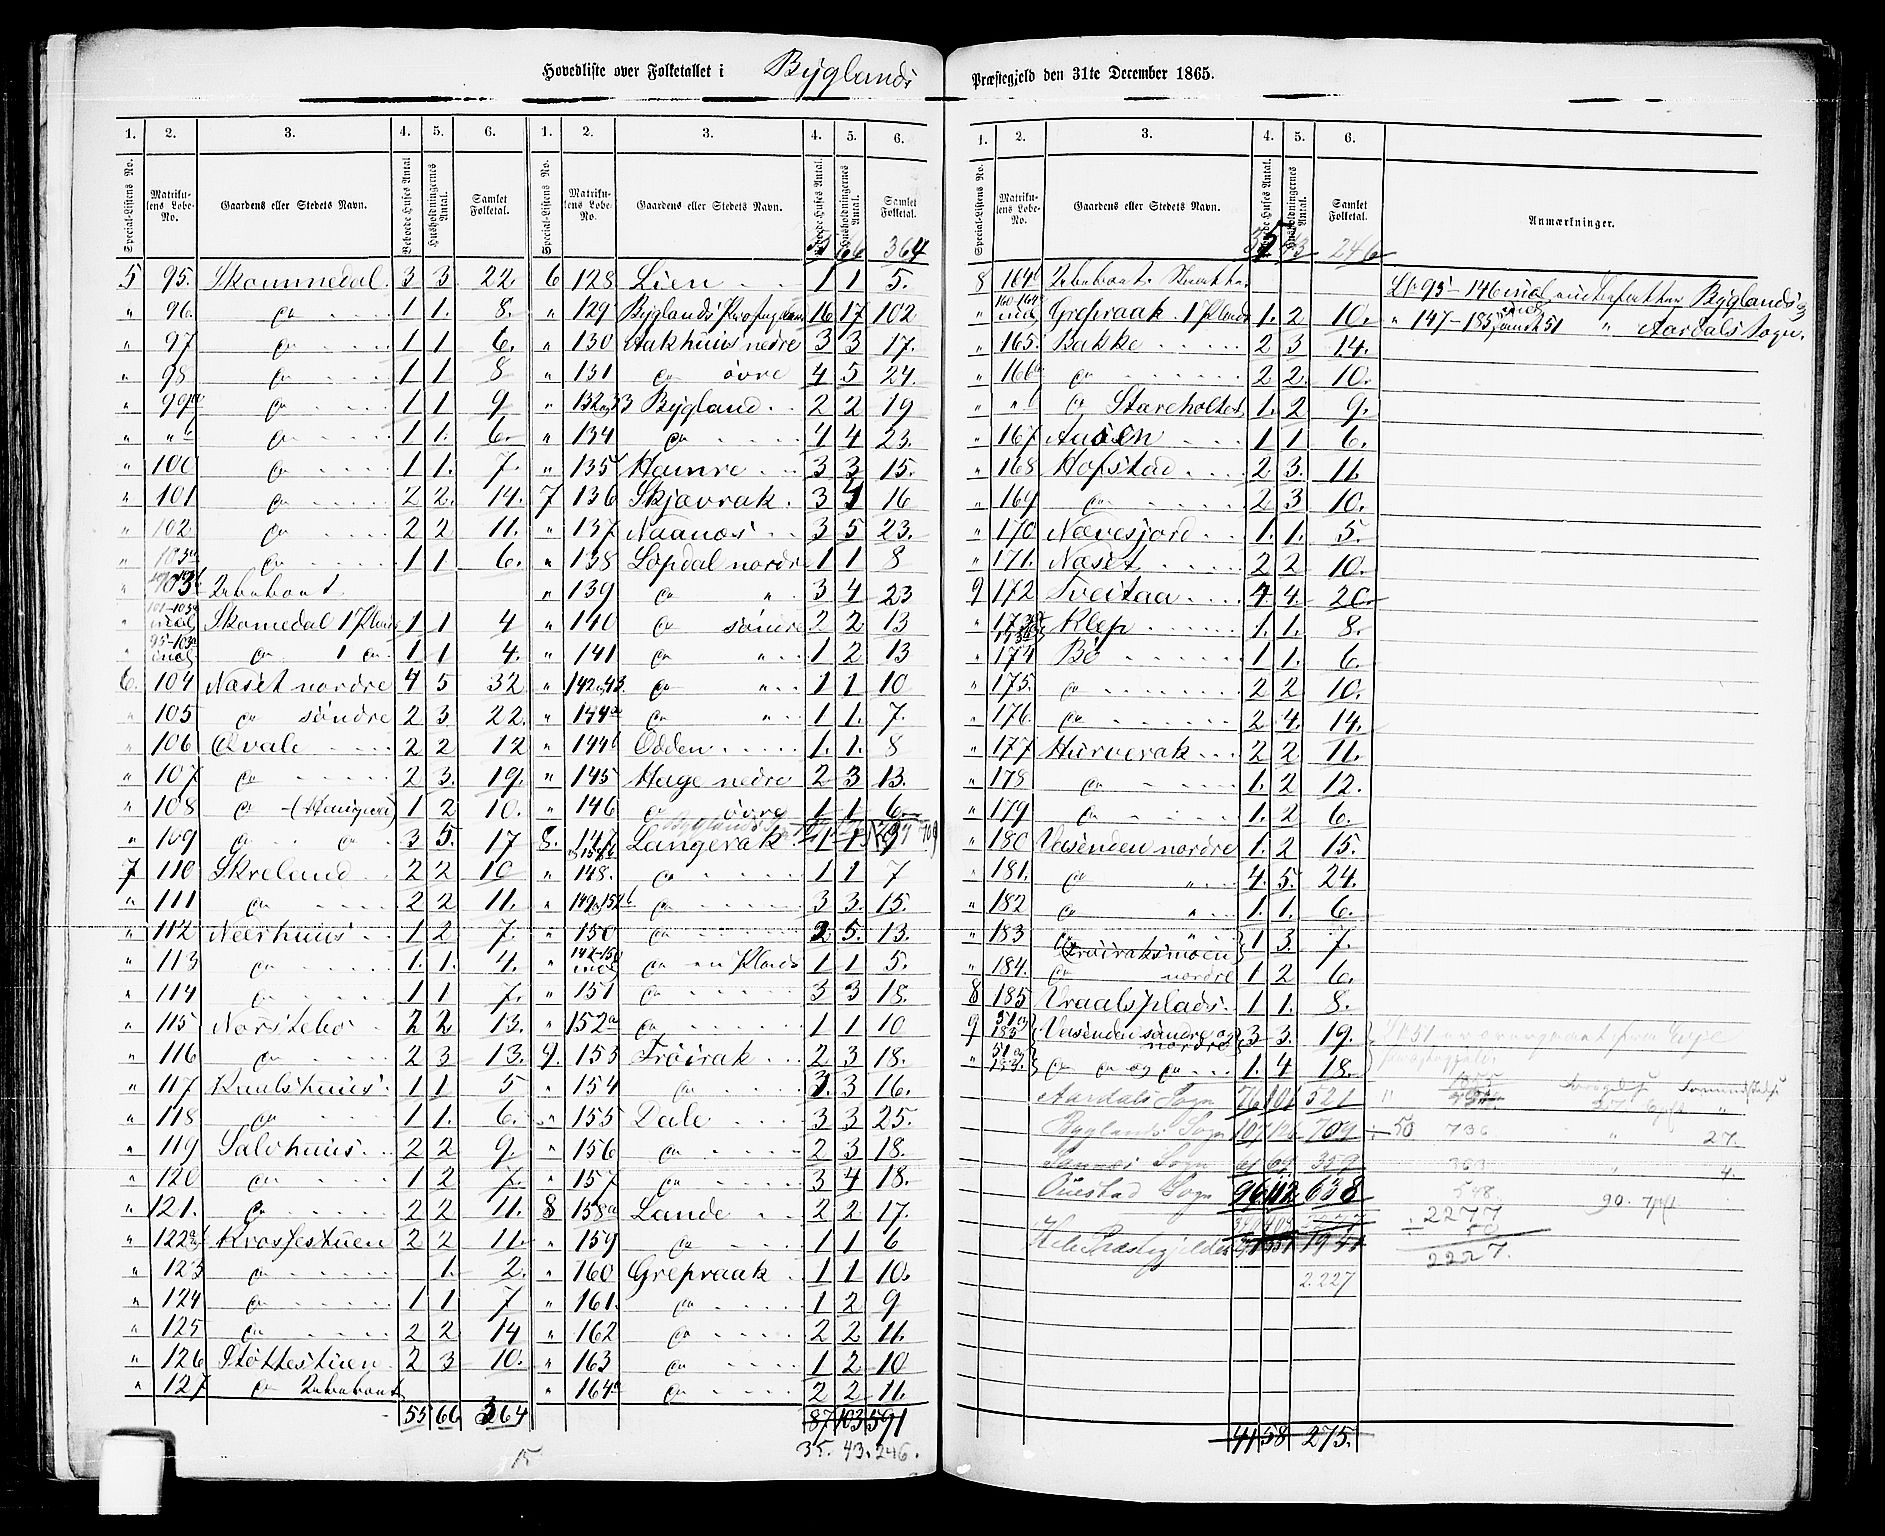 Hovedliste over Folketallet i Byglands
1. 2. 3. 4. 5. 6. 1. 2. 3. 4. 5. 6.
Special-Listens No. Matrikulens Løbe-No. Gaardens eller Stedets Navn. Beboede Huses Antal Husholdningernes Antal. Samlet Folketal. Special-Listens No. Matrikulens Løbe-No. Gaardens eller Stedets Navn. Beboede Huses Antal. Husholdningernes Antal. Samlet Folketal.
55 66 364
5 95. Skommedal 3 3 22
" 96. do 1 1. 8.
" 97 do 1 1 6.
" 98 do 1 1 8
" 99a do 1 1 9
" "b do 1 1. 6.
" 100 do 1 1. 7.
" 101 do 2 2. 14.
" 102 do 2 2 11.
" 103a do 1 1 6.
" 103b Ubeboet
" 101-103a incl. Skomedal 1 Plads 1 1 4
" 95-103a incl. do 1 do 1 1 4.
6. 104 Næset nordre 4 5 32
" 105 do søndre 2 3 22.
" 106 Qvale 2 2 12
" 107 do 2 3. 19.
" 108 do 1 2 10.
" 109 do do 3 5. 17
7 110 Skreland 2 2 10
" 111 do 2 2 11.
" 112 Neerhuus 1 2 7.
" 113 do 1. 1. 4.
" 114 do 1 1 7.
" 115 Norstebø 2 2 13.
" 116 do 2 3 13.
" 117 Kuulshuus 1 1 5
" 118 do 1 1. 6.
" 119 Salvhuus 2 2 9.
" 120 do 1 2 7.
" 121. do 2 2 11.
" 122ab Krosfestuen 2 2 11.
" 123 do 1. 2.
" 124 do 1 1 7
" 125 do 2 2 14
" 126 Støttestuen 2 3 10.
" 127 do Ubeboet
55 66 364
15
6 128 Lien 1 1 5.
" 129 Byglands Præstegaard 16 17 102
" 130 Aakhuus nedre 3 3 17.
" 131 do øvre 4 5 24.
" 132 og 33 Bygland 2 2 19
" 134 do 4 4 23.
" 135 Hamre 3 3 15.
7 136 Skjævrak 3 4 16
" 137 Naanes 3 5 23.
" 138 Lopdal nordre 1 1 8
" 139 do " 3 4 23
" 140 do søndre 2 2 13
" 141 do " 1 2 13
" 142 og 43. do " 1 1 10
" 144a do " 1 1. 7.
" 144b Odden 1. 1. 8
" 145 Hage nedre 2 3 13.
" 146 do øvre 1 1 6.
8. 147 Langerak 1 1 9
" 148. do 1 1 7
" 149 og 152b do 3 3. 15.
" 150 do 2 5. 13.
" 142-150 incl. do en Plads 1 1 5.
" 151 do 3 3 18.
" 152a do 1 1 10
9. 153 Frøirak 2 3 18.
" 154 do 3 3 16.
" 155 Dale 3 3 25.
" 156 do 2 3 18.
" 157 do 3 4 18.
8 158a Lande 2 2 17.
" 159 do 1 1 6
" 160 Grepraak 1 1 10.
" 161. do 1 2 9
" 162 do 2 2 11.
" 163 do 1 2 10
" 164a do 2 2 11.
87 103 591
35. 43. 246.
Præstegjeld den 31te December 1865.
1. 2. 3. 4. 5. 6.
Special-Listens No. Matrikulens Løbe-No. Gaardens eller Stedets Navn. Beboede Huses Antal. Husholdningernes Antal. Samlet Folketal. Anmærkninger.
35 43 246
8 164b Ubeboet
" 160-164a incl. Grepraak 1 Plads 1. 2 10.
" 165. Bakke 2 3 14.
" 166a do 2 2. 10.
" "b do Stareholtet 1. 2 9.
" 167 Aasen 1 1 6.
" 168 Hofstad 2 3. 11.
" 169 do 2 3 10.
" 170 Nævesjord 1. 1. 5.
" 171. Næset 2 2 10.
9 172 Tveitaa 4 4. 20.
" 173 Klep 1. 1. 8.
" 174 Bø 1 1. 6.
" 175. do 2 2 10.
" 176. do 2 4. 14.
" 177 Hurverak 2 2. 11.
" 178 do 1. 2 12.
" 179 do 1. 2 6.
" 180 Veisenden nordre 1. 2 15.
" 181. do " 4. 5. 24.
" 182 do " 1. 1. 6.
" 183 do " (Frøiraksmoen) 1 3. 7.
" 184. do nordre 1 2 6.
8 185 Vraalsplads 1 1. 8.
9 51 og 183 Veisenden søndre og nordre 3 3. 19.
" 51 og 184 do do og do 1. 4 18.
Aardals Sogn 76 101 521
Byglands Sogn 107 126 709 50 736 27.
Sannes Sogn 61 69 359 4.
Øuestad Sogn 96 112 638 548. 90.
Hele Præstegjeldet
2277
50
2227.
2.227
41 58 275.
Lb 95-146 incl. Byglands
" 147-185 incl. samt 51 " Aardals Sogn.